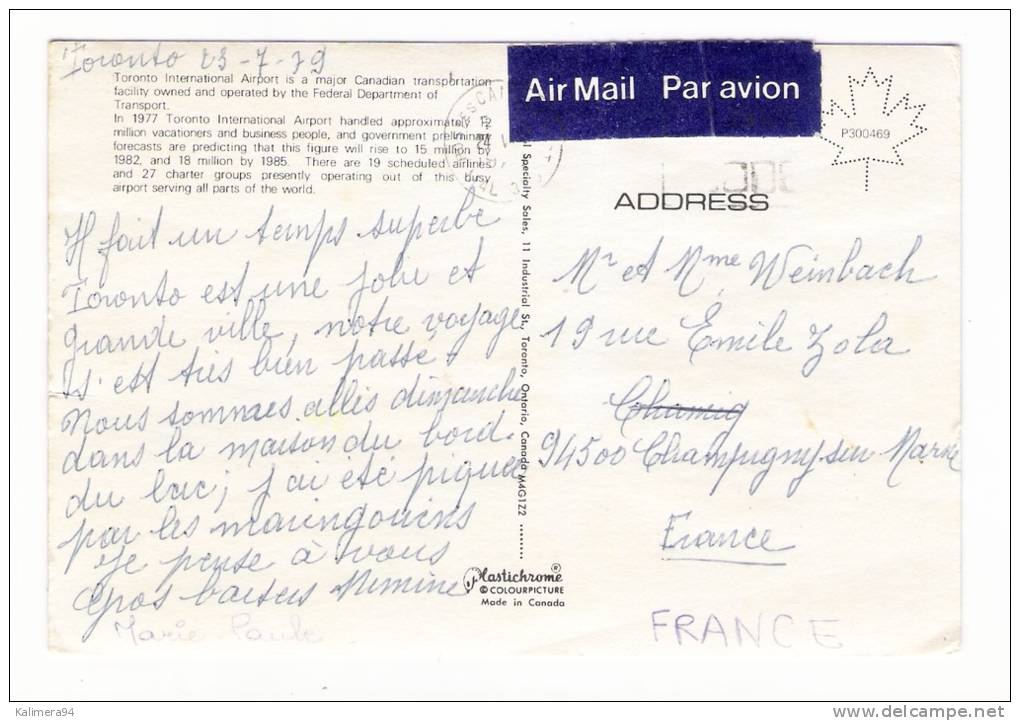 Toronto 23-7-79
Toronto International Airport is a major Canadian transportation
facility owned and operated by the Federal Department of
Transport.
In 1977 Toronto International Airport handled approximately 12
million vacationers and business people, and government preliminary
forecasts are predicting that this figure will rise to 15 million by
1982, and 18 million by 1985. There are 19 scheduled airlines
and 27 charter groups presently operating out of this busy
airport serving all parts of the world.
Il fait un temps superbe
Toronto est une jolie et
grande ville, notre voyage
s'est très bien passé.
Nous sommes allés dimanche
dans la maison du bord
du lac, j'ai été piquée
par les maringouins
Je pense à vous
Gros baisers Mimine
Marie Paule
Specialty Sales, 11 Industrial St., Toronto, Ontario, Canada M4G1Z2
Plastichrome®
© COLOURPICTURE
Made in Canada
Air Mail Par avion
P300469
ADDRESS
Mr et Mme Weinbach
19 rue Émile Zola
94500 Champigny sur Marne
France
FRANCE
Kalimera94
delcampe.net